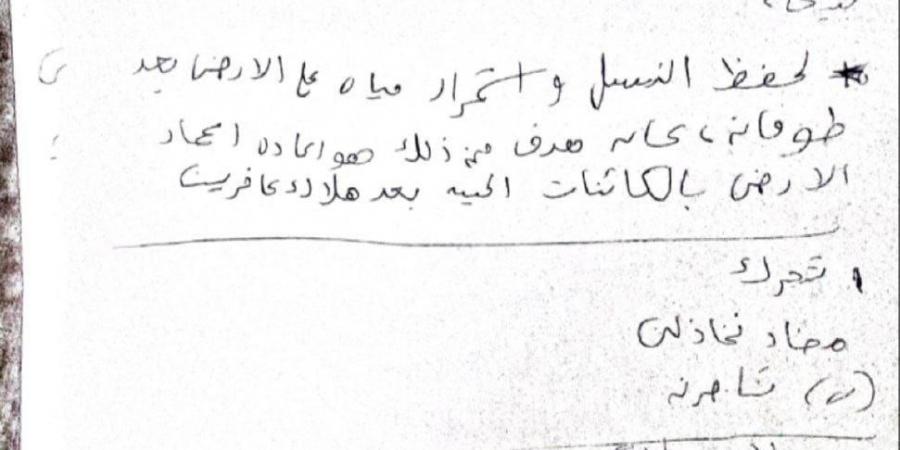 * لحفظ النسل واستمرار مياه على الارض بعد
طوفانه، كانه هدف من ذلك هو اعاده اعمار
الارض بالكائنات الحيه بعد هلاك كافرين
١ تحرك
مضاد تخاذلى
(ب) تناصرنه